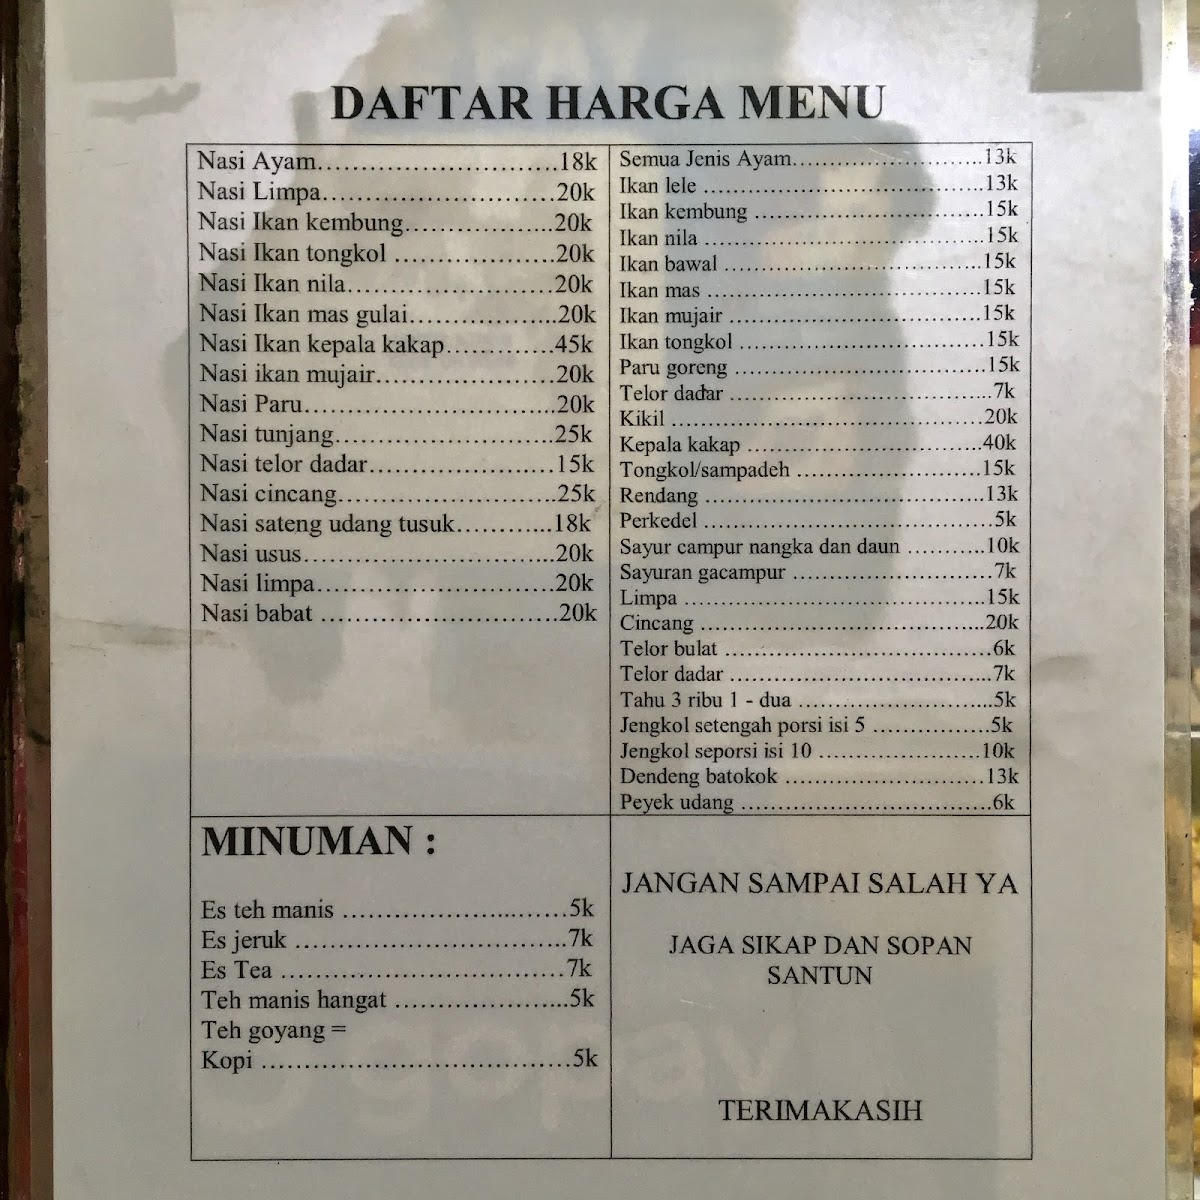 DAFTAR HARGA MENU
Nasi Ayam..............................18k
Nasi Limpa.............................20k
Nasi Ikan kembung...................20k
Nasi Ikan tongkol ....................20k
Nasi Ikan nila..........................20k
Nasi Ikan mas gulai..................20k
Nasi Ikan kepala kakap.............45k
Nasi ikan mujair.......................20k
Nasi Paru................................20k
Nasi tunjang............................25k
Nasi telor dadar.......................15k
Nasi cincang...........................25k
Nasi sateng udang tusuk............18k
Nasi usus................................20k
Nasi limpa..............................20k
Nasi babat ..............................20k
Semua Jenis Ayam........................13k
Ikan lele ...................................13k
Ikan kembung .............................15k
Ikan nila ...................................15k
Ikan bawal .................................15k
Ikan mas ...................................15k
Ikan mujair ................................15k
Ikan tongkol ...............................15k
Paru goreng ................................15k
Telor dadar .................................7k
Kikil .......................................20k
Kepala kakap ..............................40k
Tongkol/sampadeh ........................15k
Rendang ...................................13k
Perkedel ....................................5k
Sayur campur nangka dan daun ...........10k
Sayuran gacampur .........................7k
Limpa ......................................15k
Cincang ....................................20k
Telor bulat .................................6k
Telor dadar .................................7k
Tahu 3 ribu 1 - dua ........................5k
Jengkol setengah porsi isi 5 ...............5k
Jengkol seporsi isi 10 ....................10k
Dendeng batokok .........................13k
Peyek udang ................................6k
MINUMAN :
Es teh manis ............................5k
Es jeruk ..................................7k
Es Tea ....................................7k
Teh manis hangat ......................5k
Teh goyang =
Kopi ......................................5k
JANGAN SAMPAI SALAH YA
JAGA SIKAP DAN SOPAN
SANTUN
TERIMAKASIH
gopay